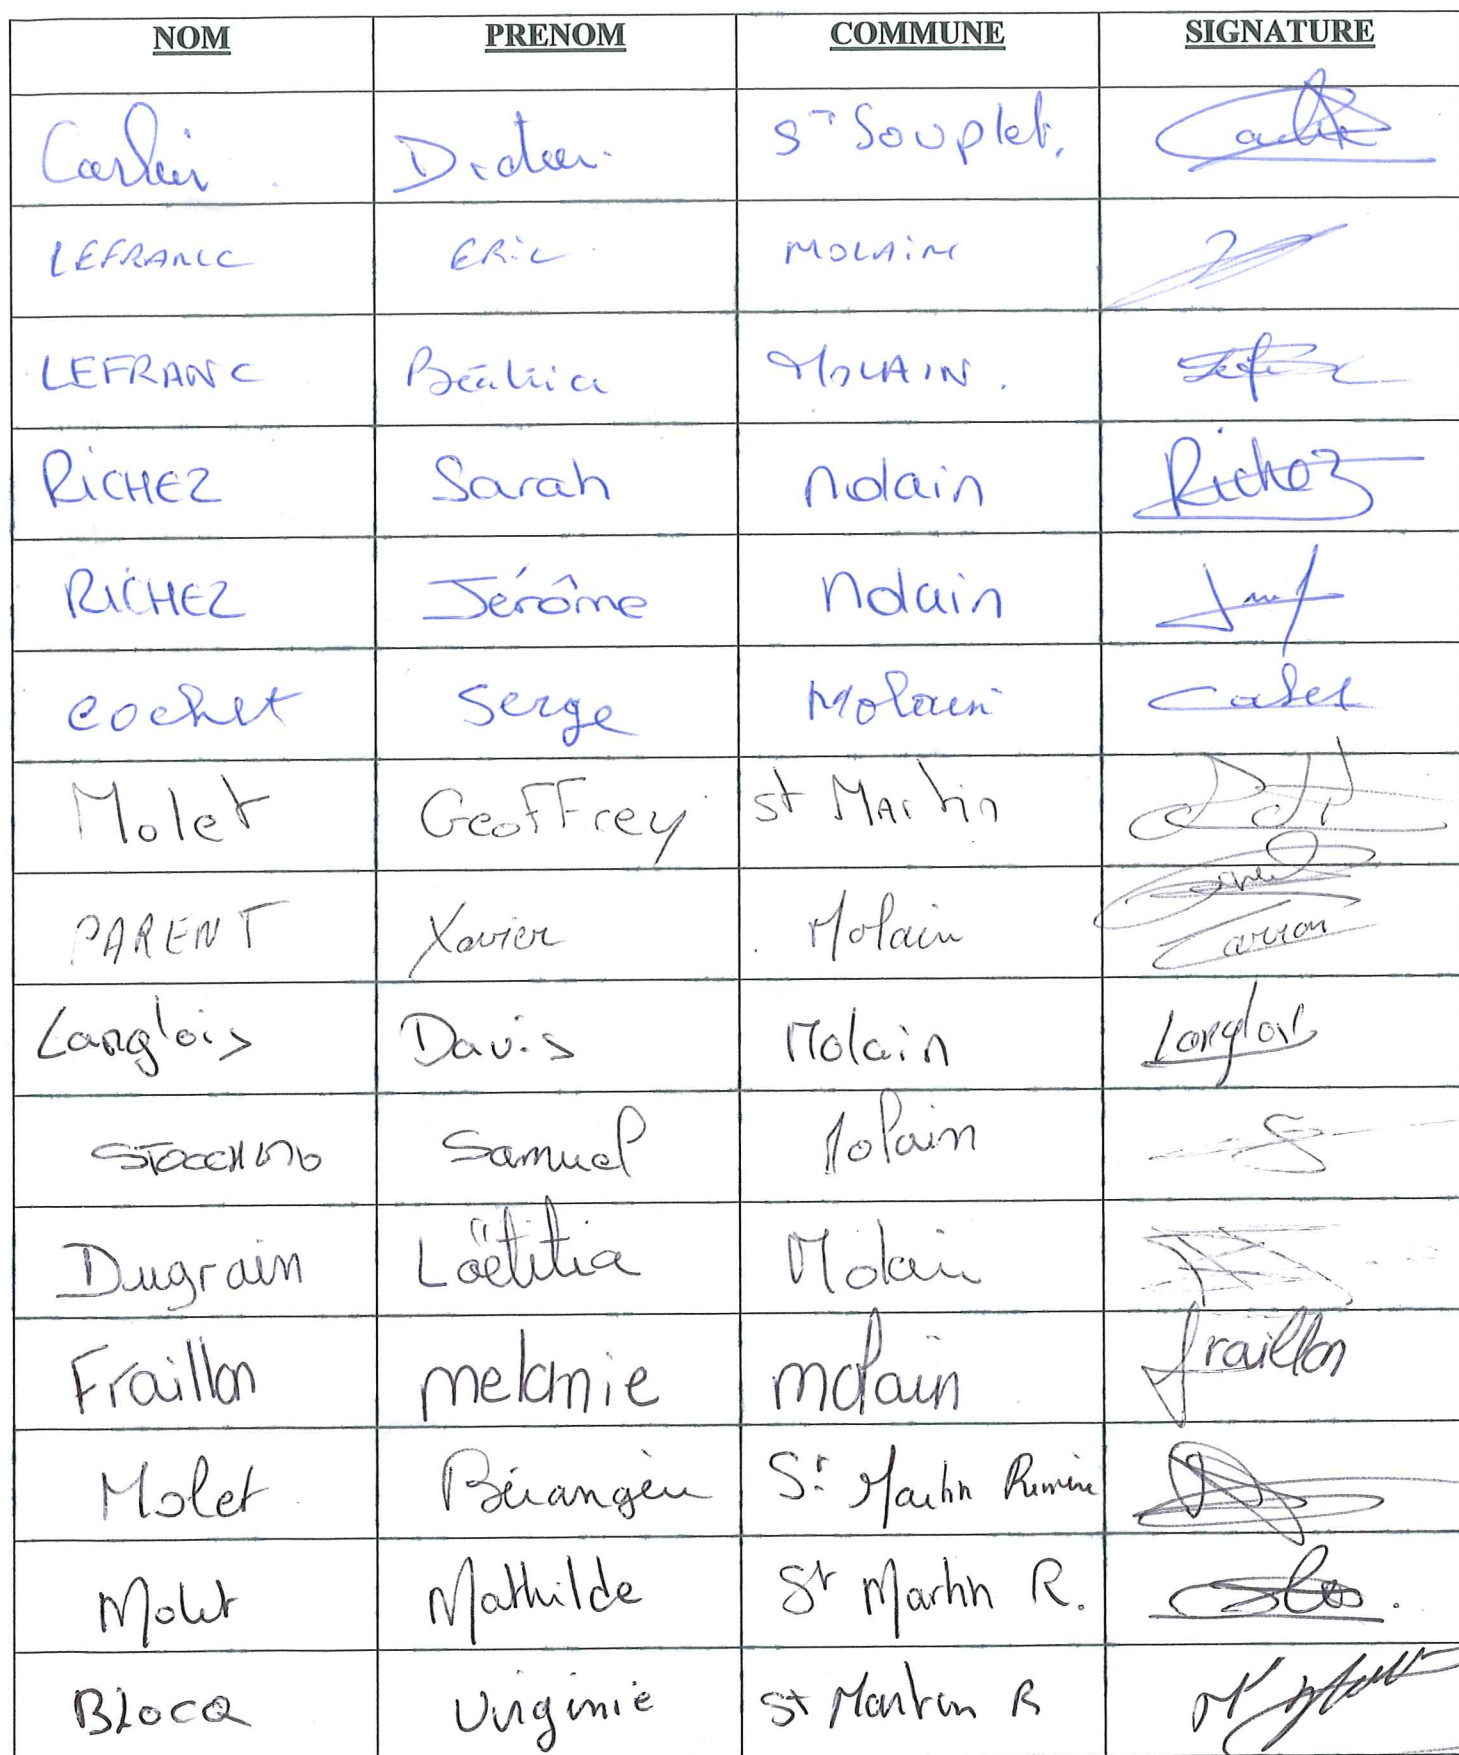 NOM PRENOM COMMUNE SIGNATURE
Carlier Didier S^T Souplet.
LEFRANC ERIC MOLAIN
LEFRANC Béatrice MOLAIN.
RICHEZ Sarah Molain Richez
RICHEZ Jérôme Molain
Cochet Serge Molain Cochet
Molet Geoffrey St Martin
PARENT Xavier Molain
Langlois Davis Molain Langlois
STOCCHINO Samuel Molain
Dugrain Laëtitia Molain
Fraillon melanie molain fraillon
Molet Bérangère St Martin Rivière
Molet Mathilde St Martin R.
BLOCQ Virginie St Martin R